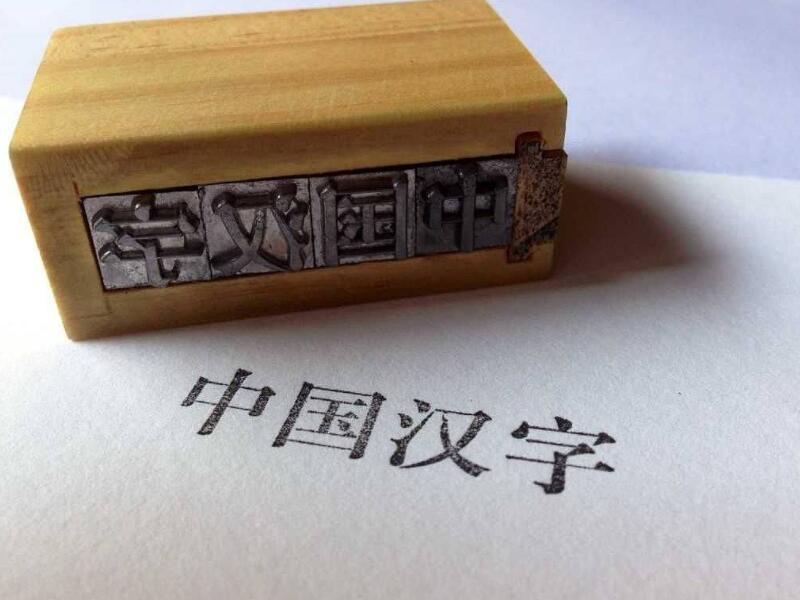 中国汉字
中国汉字